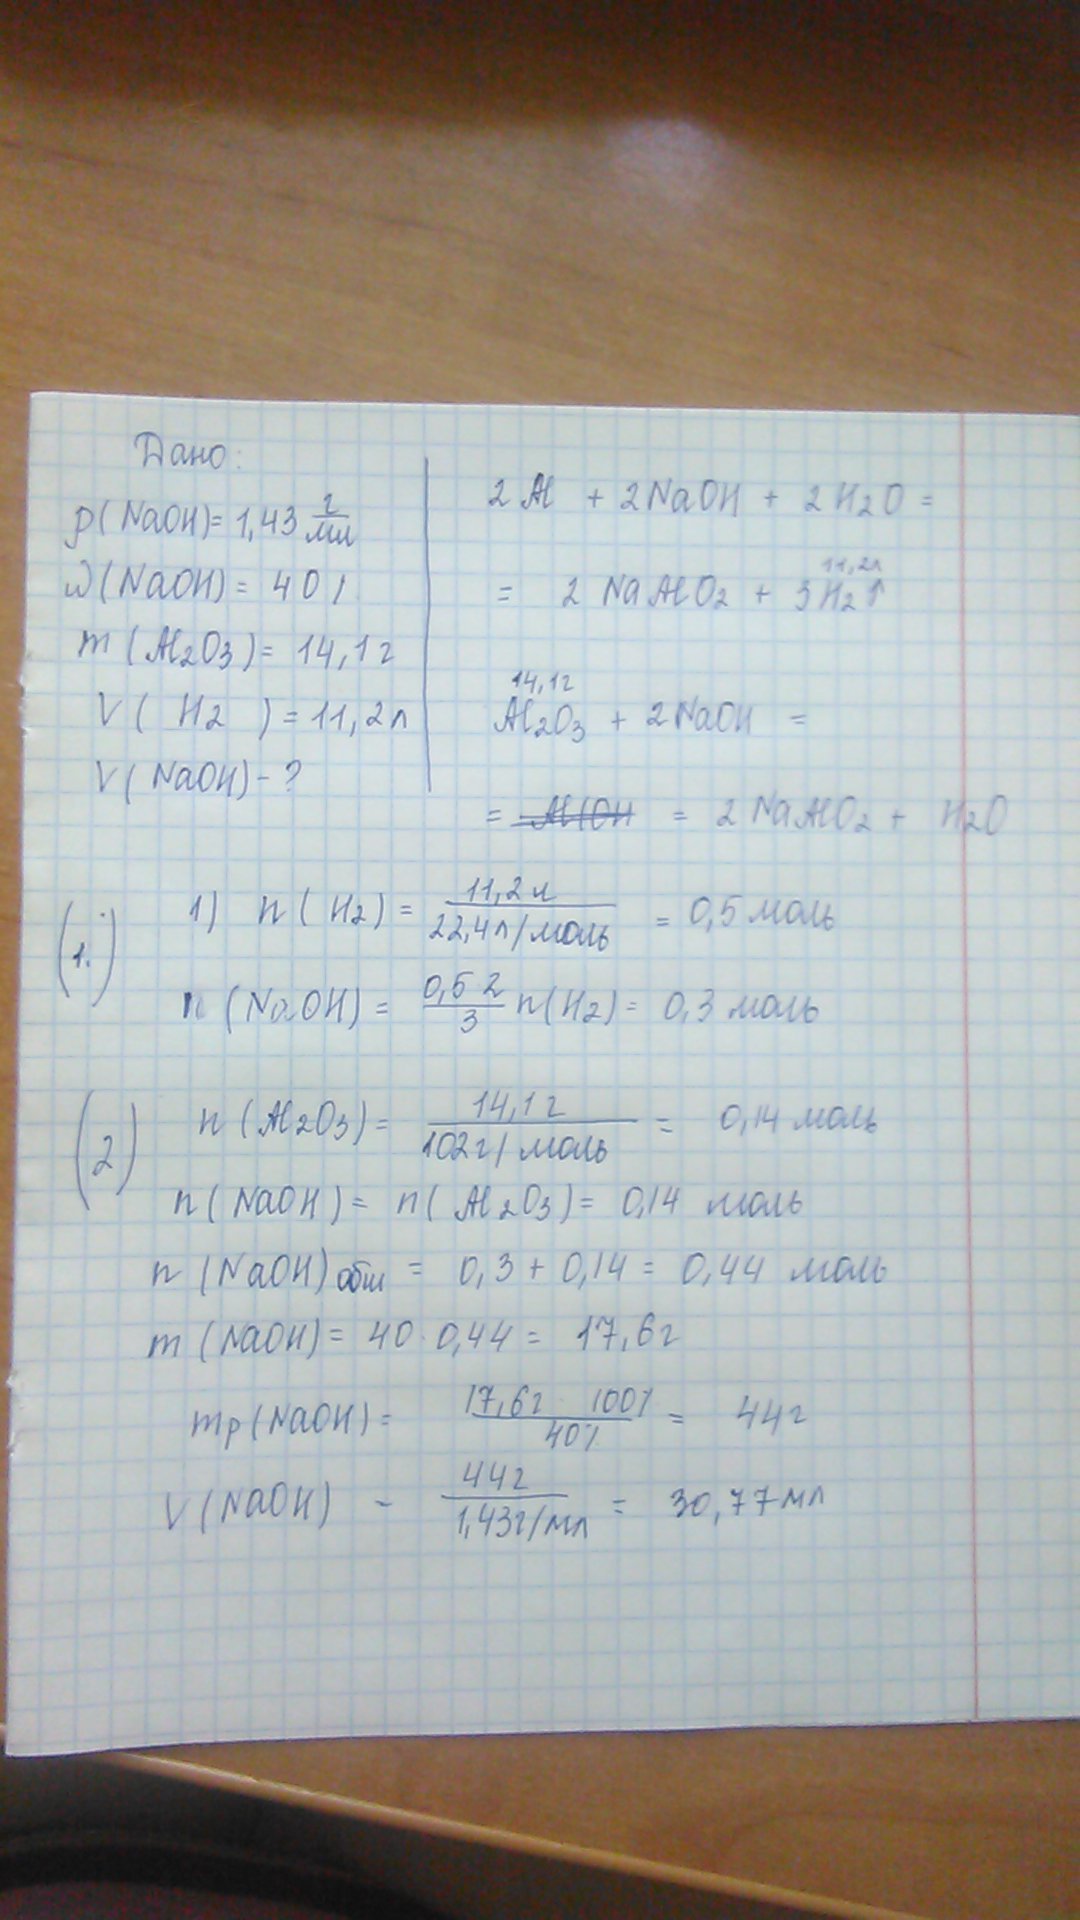 Дано:
ρ(NaOH)= 1,43 г/мл
ω(NaOH) = 40%
m(Al2O3)= 14,1г
V( H2 ) = 11,2л
V(NaOH) - ?
2Al + 2NaOH + 2H2O =
11,2л
= 2 NaAlO2 + 3H2↑
14,1г
Al2O3 + 2NaOH =
= Al(OH = 2NaAlO2 + H2O
(1.) 1) n(H2) = 11,2л / 22,4л/моль = 0,5 моль
n(NaOH) = 0,5 2 / 3 n(H2) = 0,3 моль
(2) n(Al2O3) = 14,1г / 102г/моль = 0,14 моль
n(NaOH) = n(Al2O3) = 0,14 моль
n(NaOH)общ = 0,3 + 0,14 = 0,44 моль
m(NaOH) = 40 · 0,44 = 17,6г
mр(NaOH) = 17,6г 100% / 40% = 44г
V(NaOH) - 44г / 1,43г/мл = 30,77мл